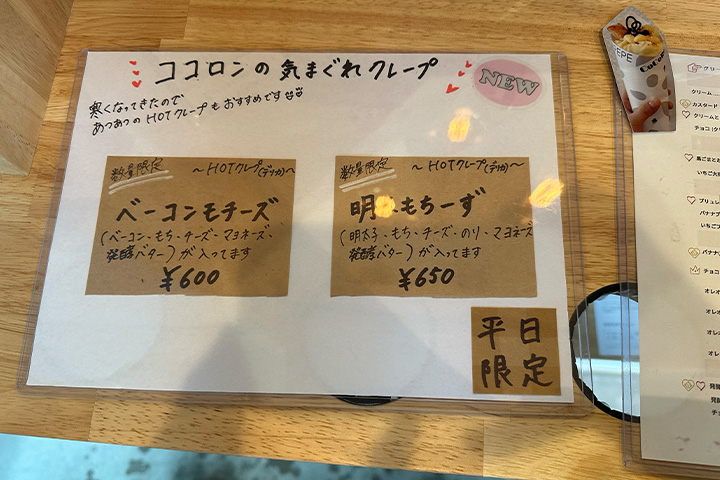 ココロンの気まぐれクレープ
NEW
寒くなってきたので
あつあつのHOTクレープもおすすめです
数量限定
～HOTクレープ(デリカ)～
ベーコンモチーズ
(ベーコン・もち・チーズ・マヨネーズ・
発酵バター)が入ってます
¥600
数量限定
～HOTクレープ(デリカ)～
明 もちーず
(明太子・もち・チーズ・のり・マヨネーズ
発酵バター)が入ってます
¥650
平日
限定
クリーム
カスタード
クリームと
チョコ
黒ごまと
いちご大
ブリュレ
バナナブ
いちごブ
バナナ
チョコ
オレオ
オレオ
オレオ
発酵
発酵
チョ